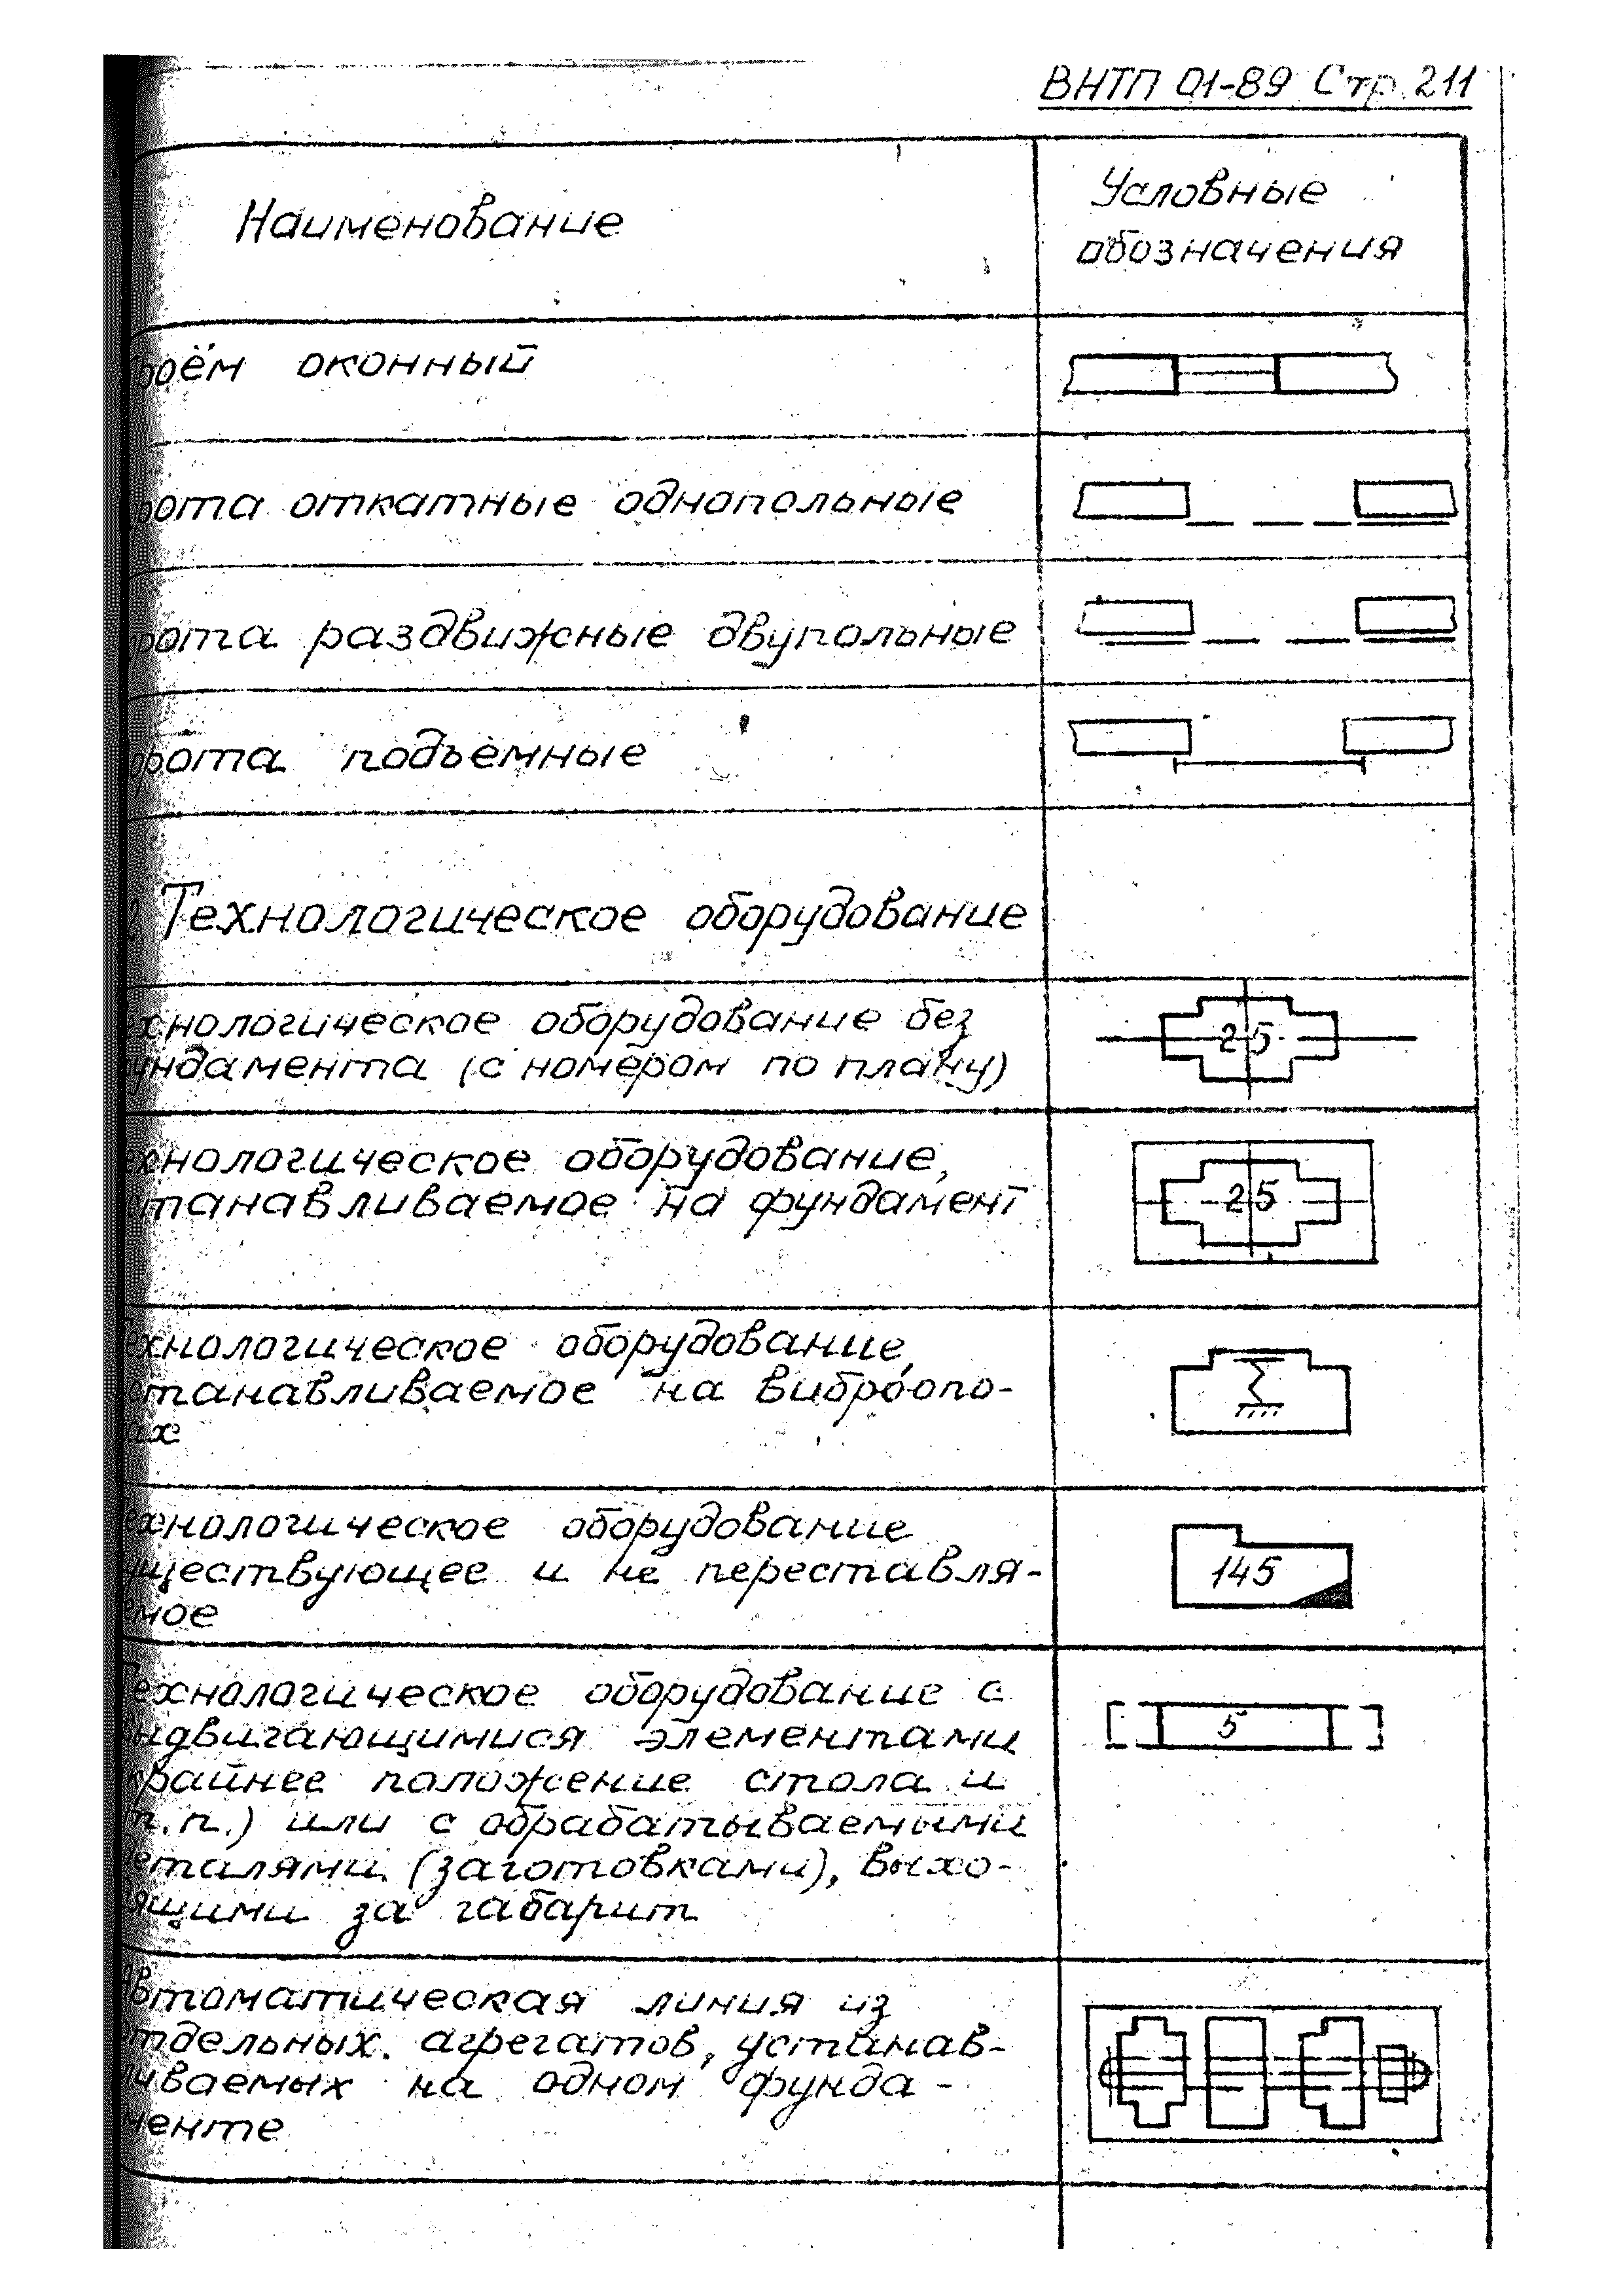 ВНТП 01-89 Стр. 211
Наименование
Условные
обозначения
Проём оконный
Ворота откатные однопольные
Ворота раздвижные двупольные
Ворота подъемные
2. Технологическое оборудование
Технологическое оборудование без
фундамента (с номером по плану)
25
Технологическое оборудование,
устанавливаемое на фундамент
25
Технологическое оборудование,
устанавливаемое на виброопо-
рах
Технологическое оборудование
существующее и не переставля-
емое
145
Технологическое оборудование с
выдвигающимися элементами
(крайнее положение стола и
т.п.) или с обрабатываемыми
деталями (заготовками), выхо-
дящими за габарит
5
Автоматическая линия из
отдельных агрегатов, устанав-
ливаемых на одном фунда-
менте